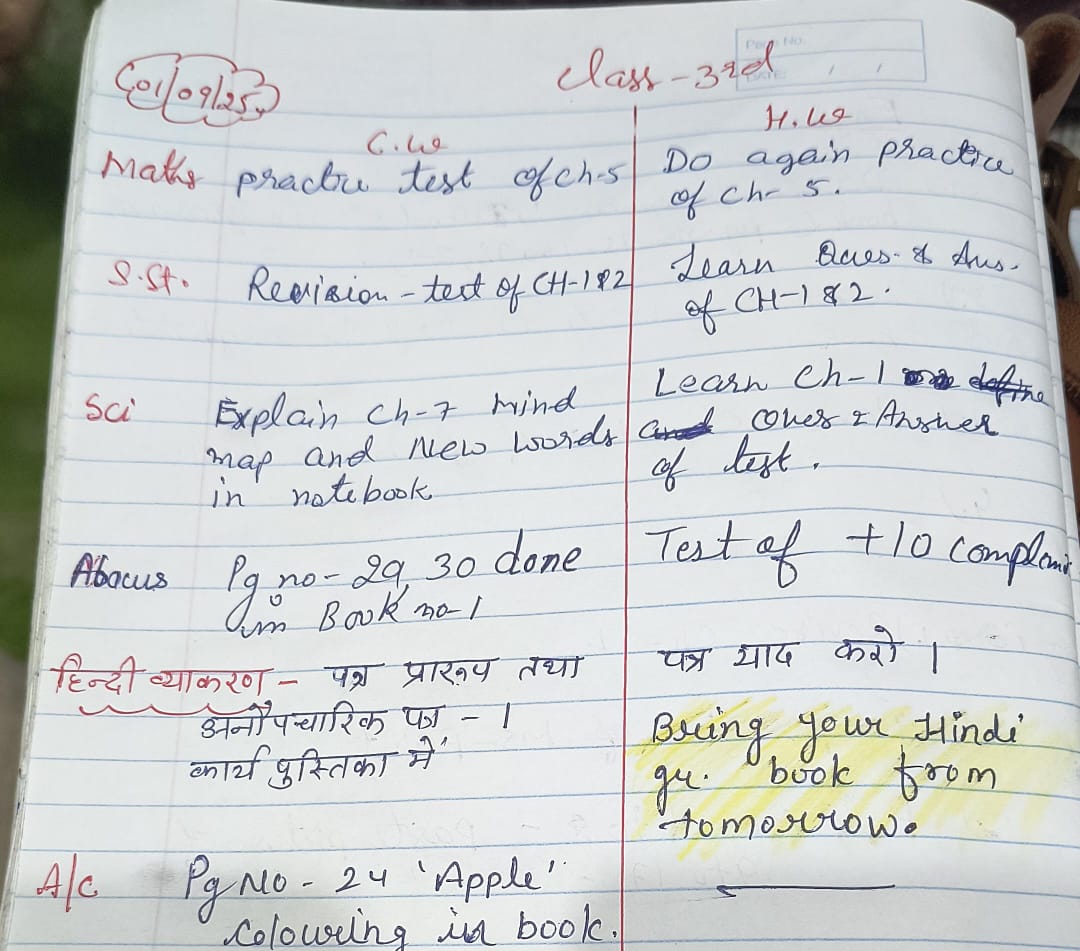 01/09/25
Class - 3rd
Page No.
DATE:
C.W
H.W
Maths practice test of ch-5
Do again practice
of ch- 5.
S.St. Revision - test of CH-1 & 2
Learn Ques. & Ans.
of CH-1 & 2.
Sci Explain ch-7 mind
map and New words
in notebook
Learn ch-1
Ques & Answer
of test.
Abacus Pg no- 29, 30 done
in Book no-1
Test of +10
हिन्दी व्याकरण - पत्र प्रारूप तथा
अनौपचारिक पत्र - 1
कार्य पुस्तिका में
पत्र याद करो ।
Bring your Hindi
gr. book from
tomorrow.
A/c Pg No - 24 'Apple'
colouring in book.